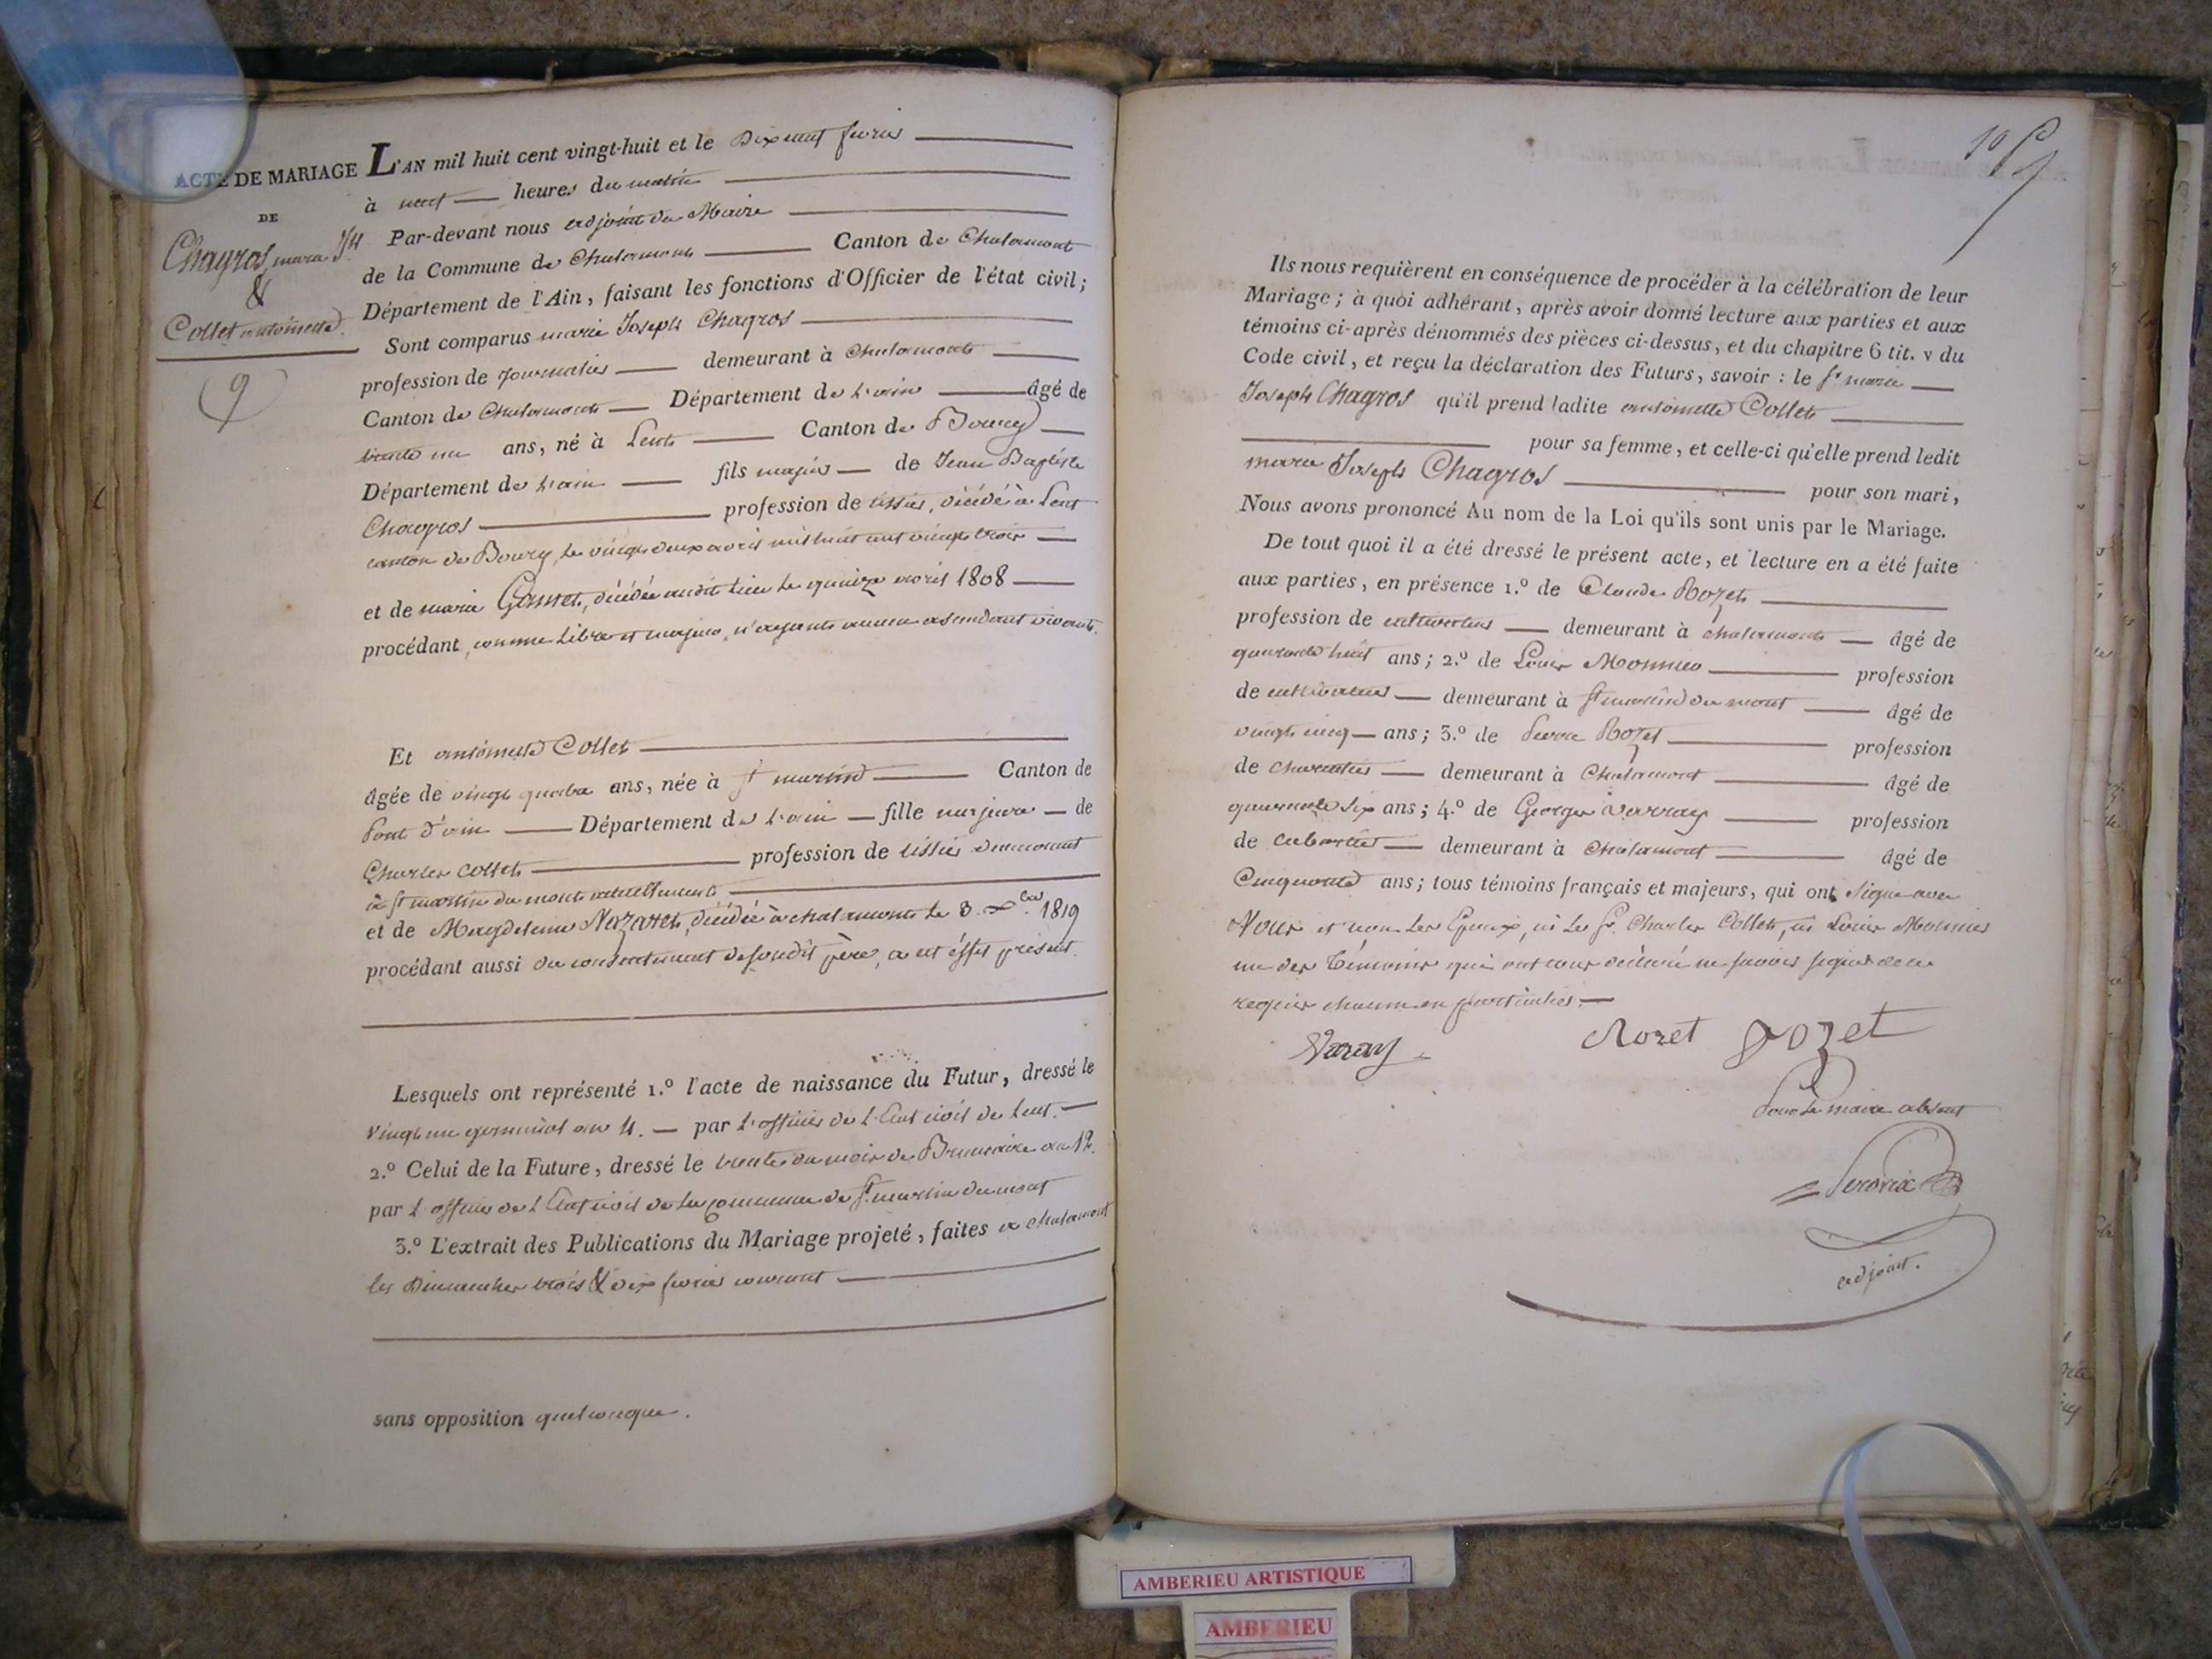 ACTE DE MARIAGE
DE
Chagros, marie Jh
&
Collet antoinette
9
L'AN mil huit cent vingt-huit et le Dix neuf fevrier
à neuf heures du matin
Par-devant nous adjoint du Maire
de la Commune de Chalamont Canton de Chalamont
Département de l'Ain, faisant les fonctions d'Officier de l'état civil;
Sont comparus marie Joseph Chagros
profession de journalier demeurant à Chalamont
Canton de Chalamont Département de l'ain âgé de
trente un ans, né à Lent Canton de Bourg
Département de l'ain fils majeur de Jean Baptiste
Chagros profession de tissier, décédé à Lent
canton de Bourg, le vingt deux avril mil huit cent vingt trois
et de marie Gonnet, décédée audit lieu le quinze avril 1808
procédant, comme libre et majeur, n'ayant aucun ascendant vivant.
Et antoinette Collet
âgée de vingt quatre ans, née à st martin Canton de
Pont d'ain Département de l'ain fille majeure de
Charles Collet profession de tissier demeurant
à st martin du mont actuellement
et de Magdeleine Nazaret, décédée à chalamont le 8 Xbre 1819
procédant aussi du consentement de sondit père, a cet effet présent.
Lesquels ont représenté 1.º l'acte de naissance du Futur, dressé le
vingt un germinal an 4. par l'officier de l'Etat civil de Lent.
2.º Celui de la Future, dressé le trente du mois de Brumaire an 12.
par l'officier de l'Etat civil de la commune de St martin du mont
3.º L'extrait des Publications du Mariage projeté, faites a chalamont
les Dimanches trois & dix fevrier courant
sans opposition quelconque.
Ils nous requièrent en conséquence de procéder à la célébration de leur
Mariage; à quoi adhérant, après avoir donné lecture aux parties et aux
témoins ci-après dénommés des pièces ci-dessus, et du chapitre 6 tit. v du
Code civil, et reçu la déclaration des Futurs, savoir : le sr marie
Joseph Chagros qu'il prend ladite antoinette Collet
pour sa femme, et celle-ci qu'elle prend ledit
marie Joseph Chagros pour son mari,
Nous avons prononcé Au nom de la Loi qu'ils sont unis par le Mariage.
De tout quoi il a été dressé le présent acte, et lecture en a été faite
aux parties, en présence 1.º de Claude Rozet
profession de cultivateur demeurant à chalamont âgé de
quarante huit ans; 2.º de Louis Monnier profession
de cultivateur demeurant à st martin du mont âgé de
vingt cinq ans; 3.º de Pierre Rozet profession
de charpentier demeurant à Chalamont âgé de
quarante six ans; 4.º de Georges Varray profession
de cabaretier demeurant à Chalamont âgé de
Cinquante ans; tous témoins français et majeurs, qui ont signé avec
Nous et non les Epoux, ni le Sr Charles Collet, ni Louis Monnier
un des témoins qui ont tous déclaré ne savoir signer de ce
requis chacun en particulier.
Varay Rozet Rozet
Pour le maire absent
adjoint.
AMBERIEU ARTISTIQUE
AMBERIEU